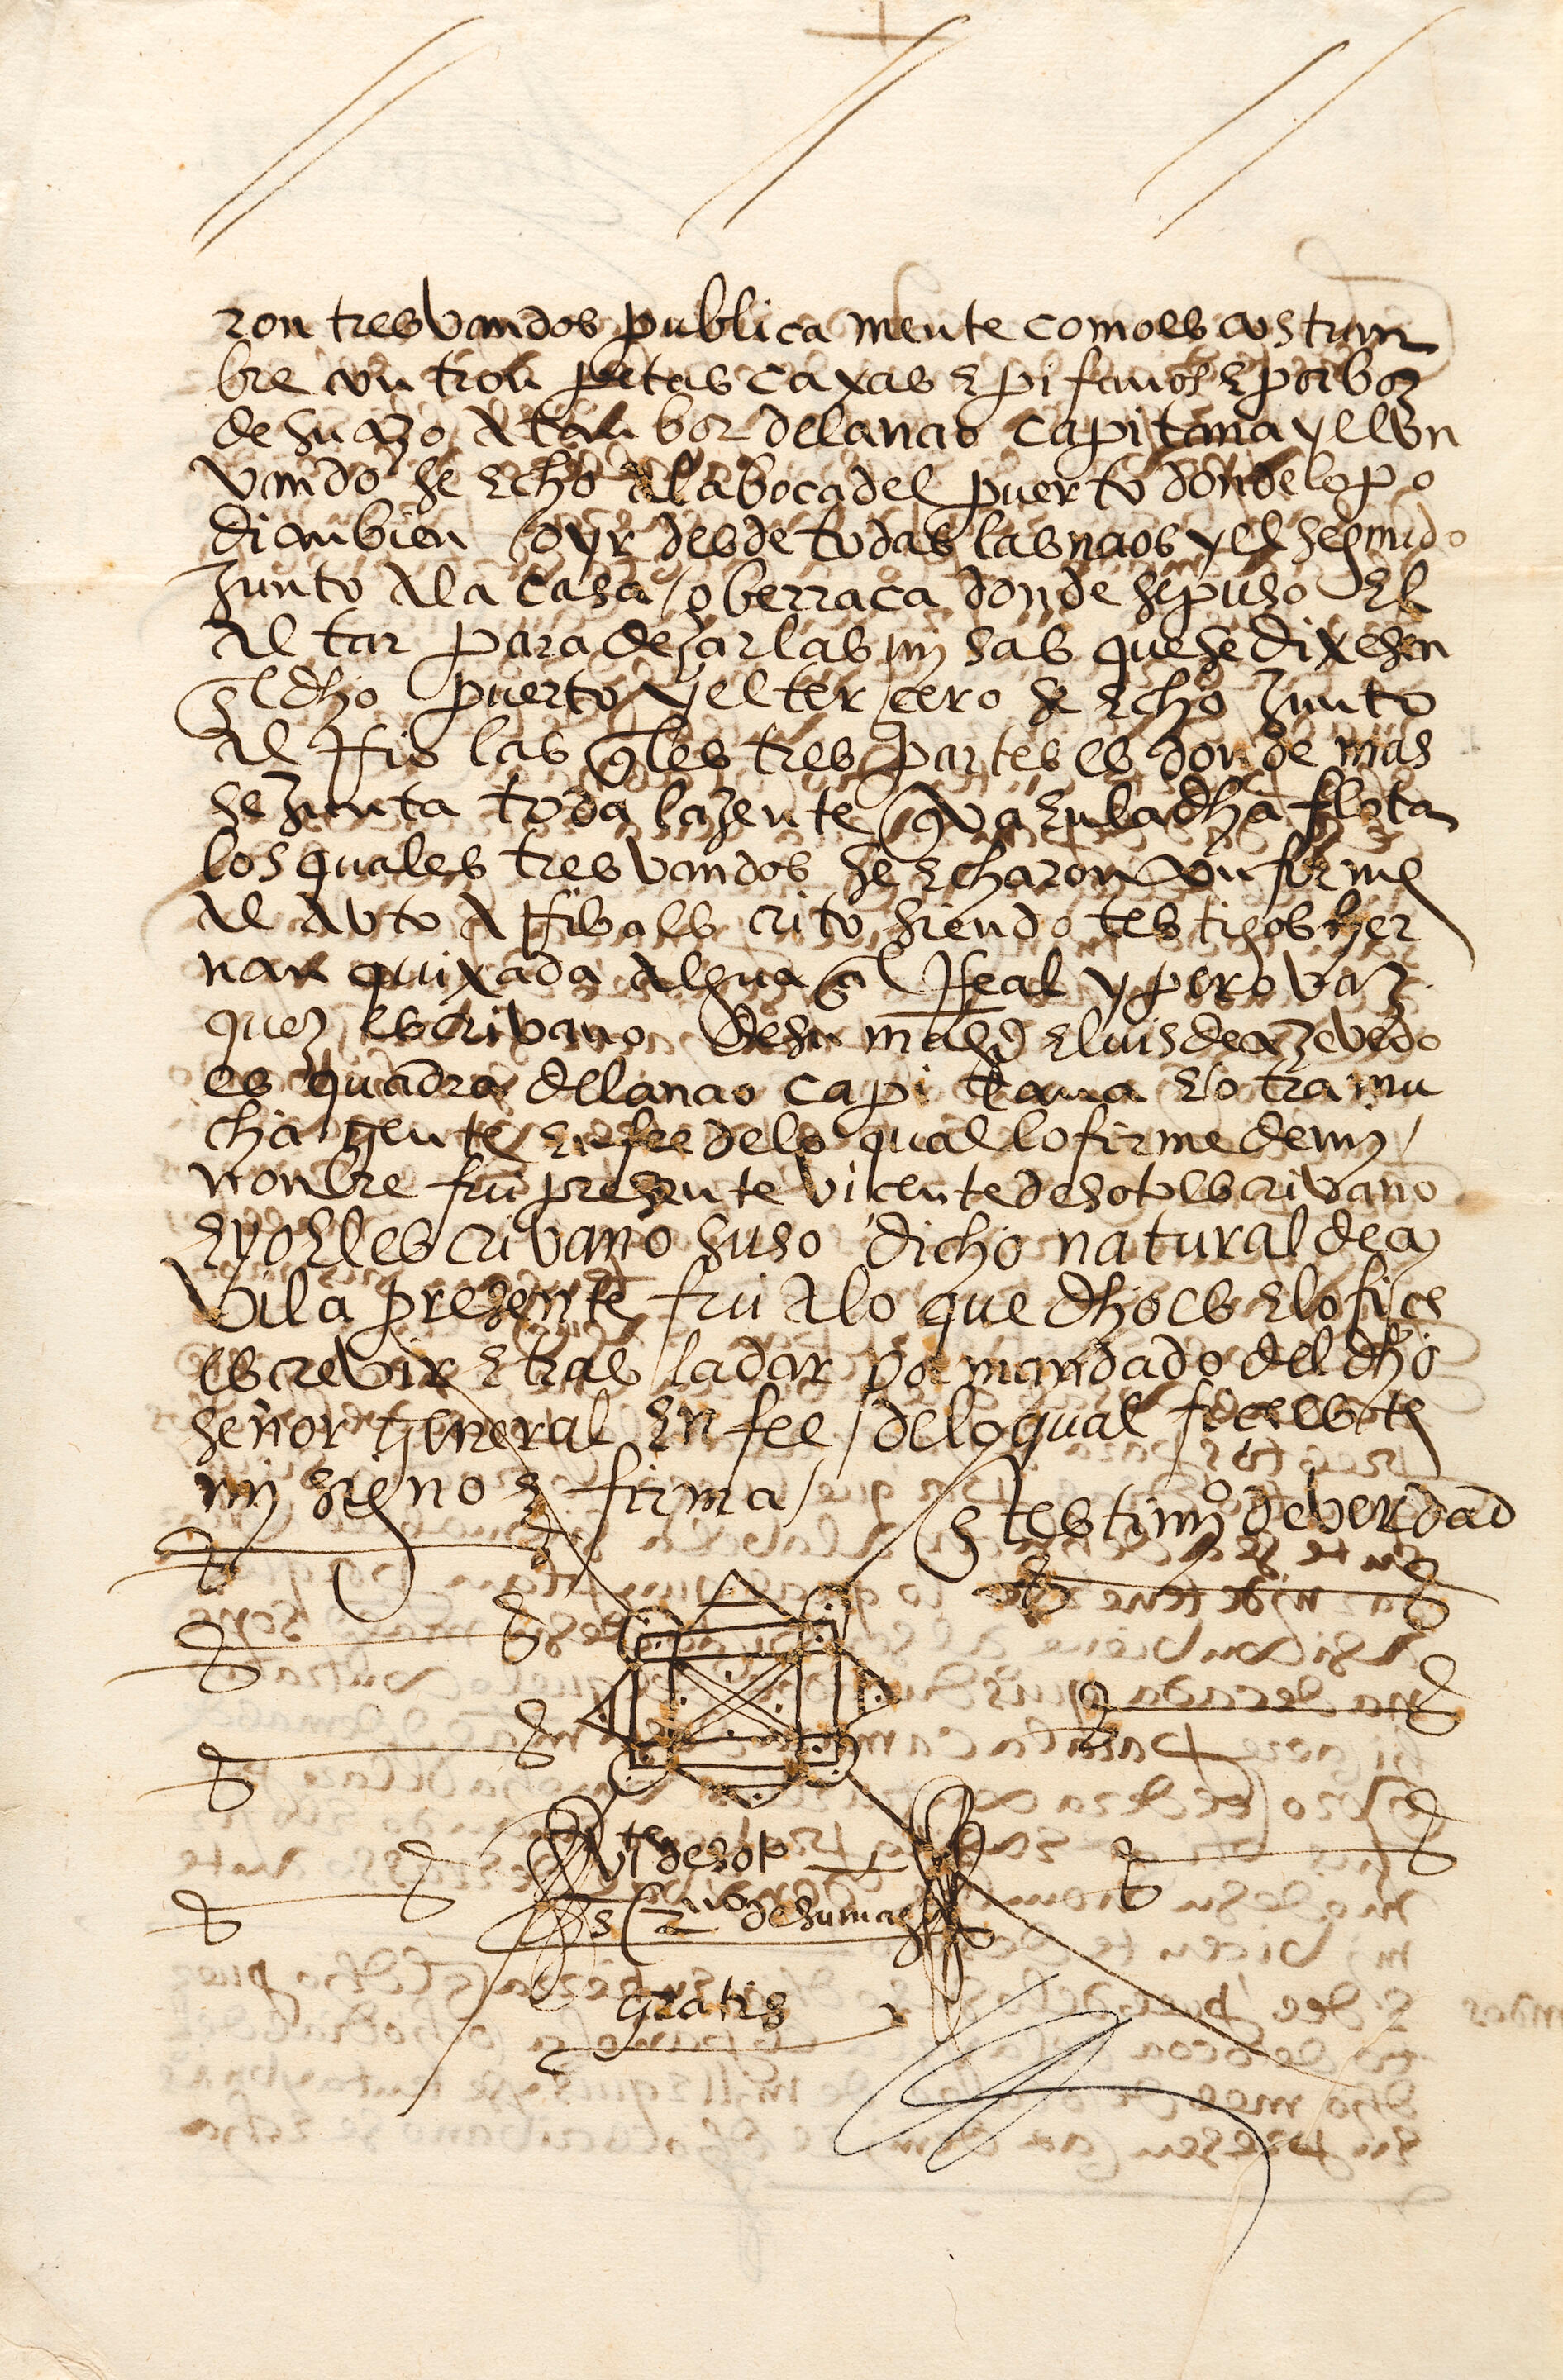 ron tres vandos publica mente como es costum
bre con tron petas caxas e pifanos e por boz
de suazo atanbor de la nao capitana y el un
vando se echo a la boca del puerto donde lo po
dian bien oyr desde todas las naos y el segundo
junto a la casa o berraca donde se puso el
altar para dezir las misas que se dixesen
en el dho puerto y el tercero se echo junto
al rrio las qles tres partes es donde mas
se junta toda la jente q va en la dha flota
los quales tres vandos se echaron conforme
al auto a rriba es crito siendo testigos her
nan quixada alguazil rreal y pero vaz
quez escrivano de su magd e luis de azevedo
es quadra de la nao capi tana e otra mu
cha gente en fee de lo qual lo firme de mi
nonbre fui presente vicente de soto escrivano
e yo el escrivano suso dicho natural de a
vila presente fui a lo que dho es e lo fice
escrevir e tras ladar por mandado del dho
señor general en fee de lo qual fice este
mi signo e firma
en testimo de verdad
vte de soto
esno de su magd
gratis